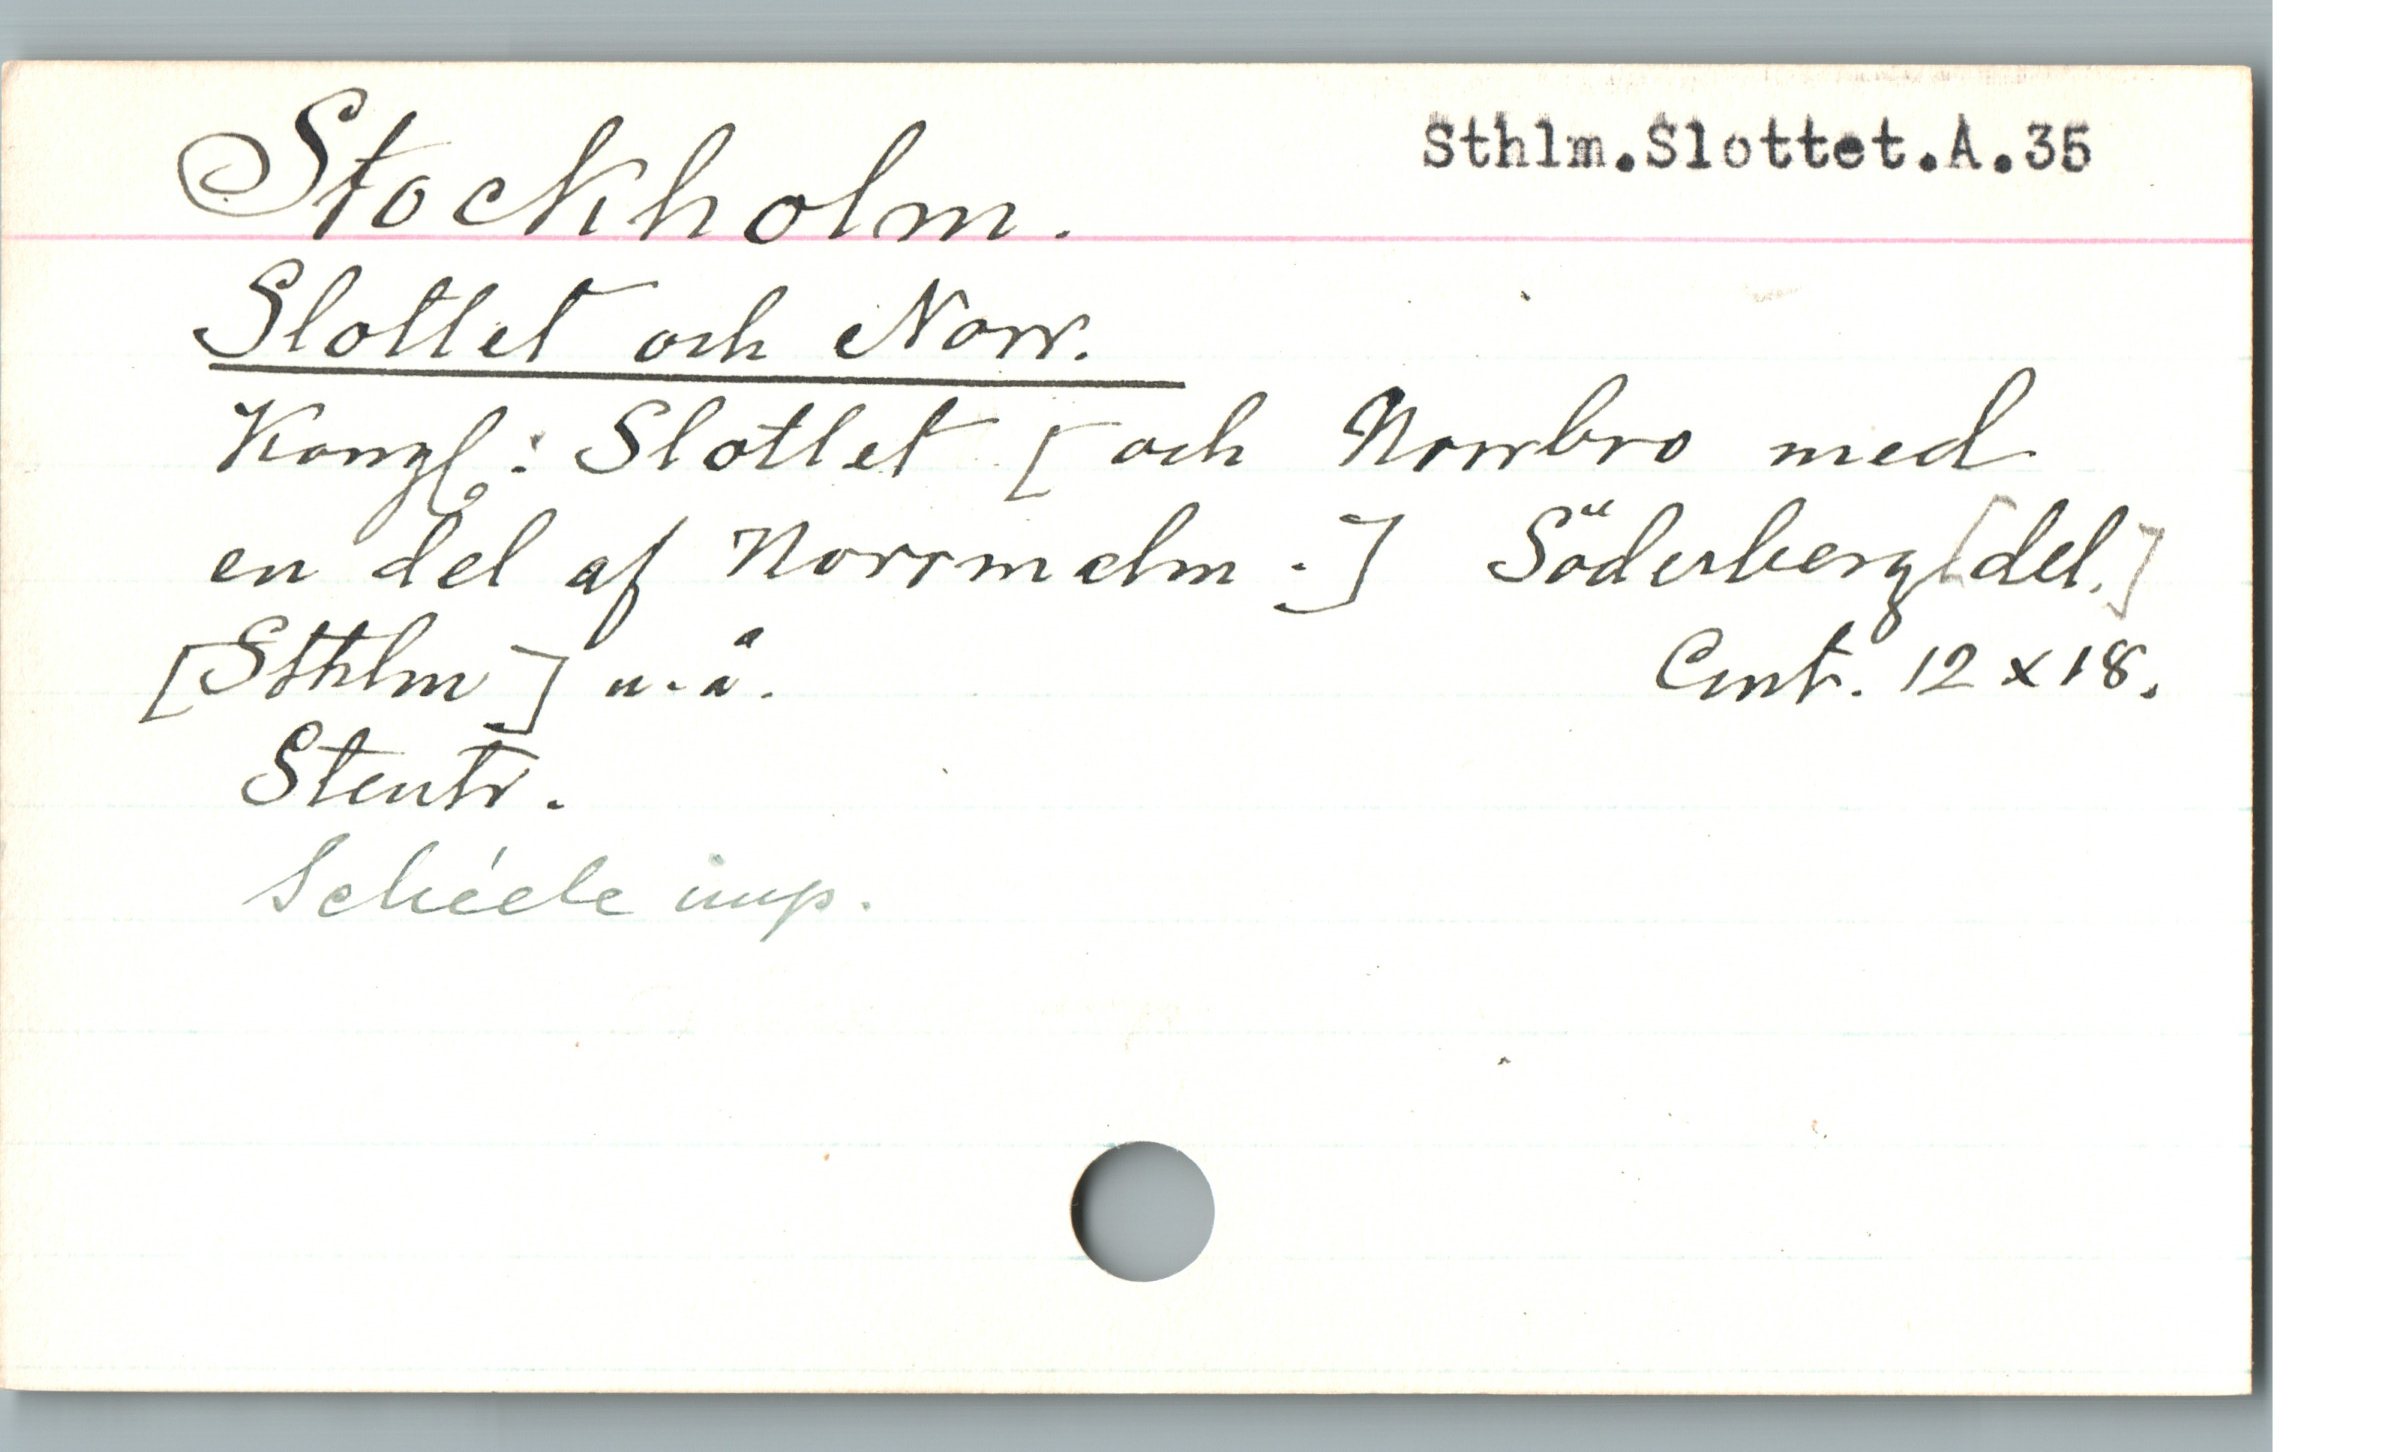 Stockholm.
Sthlm.Slottet.A.35
Slottet och Norr.
Kongl: Slottet [och Norrbro med
en del af Norrmalm.] Söderberg [del.]
[Sthlm] u.å. Cmtr. 12 x 18.
Stentr.
Schéele imp.